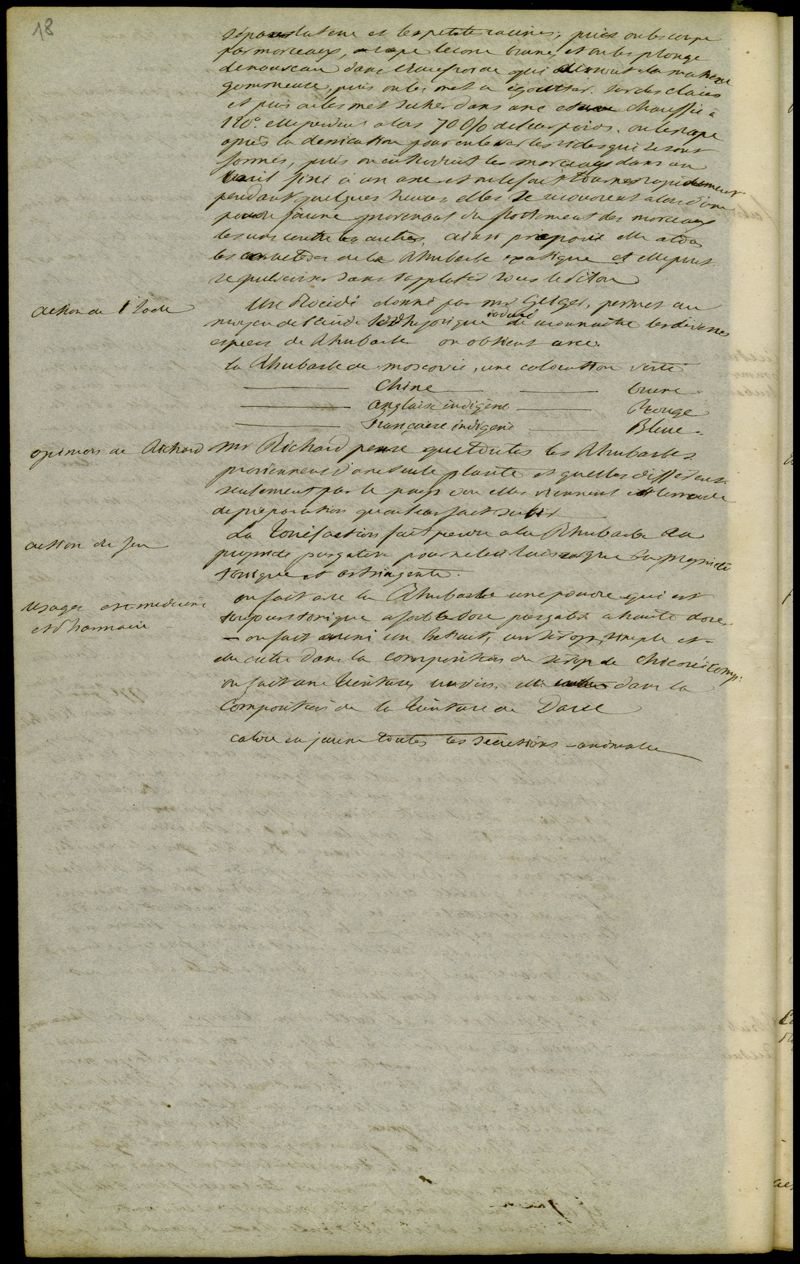 18
séparer la terre et les petites racines, puis on les coupe
par morceaux, on rape l'ecorce brune et on les plonge
de nouveau dans l'eau froide qui dissout la matiere
gommeuse, puis on les met a egoutter sur des claies
et puis on les met secher dans une etuve chauffée à
120°. elle perdent alors 70 0/0 de leur poids. on les rape
après la dessication pour enlever les rides qui se sont
formés, puis on introduit les morceaux dans un
baril fixé à un axe et on le fait tourner rapidement
pendant quelques heures elles se recouvrent alors d'une
poudre jaune provenant du frottement des morceaux
les uns contre les autres, ainsi preparée elle a tous
les caracteres de la Rhubarbe exotique et elle peut
se pulveriser dans
action de l'Iode
Un Procédé donné par mr Geiger, permet au
moyen de l'acide hydriodique ioduré de reconnaitre les diverses
especes de Rhubarbe on obtient avec
la Rhubarbe de moscovie, une coloration verte
——— Chine ——— brune
——— anglaise indigène ——— Rouge
——— Francaise indigene ——— Bleue
opinions de Richard
mr Richard pense que toutes les Rhubarbes
proviennent d'une seule plante et quelles different
seulement par le pays d'ou elles viennent et le mode
de préparation qu'on leur fait subir
action du feu
La Torréfaction fait perdre a la Rhubarbe sa
proprieté purgative pour ne lui laisser que sa propriété
tonique et astringente.
usages en medecine
et Pharmacie
on fait avec la Rhubarbe une poudre qui est
toujours tonique a faible dose purgative a haute dose
— on fait aussi un extrait, un sirop simple et
elle entre dans la composition du sirop de chicorée comp.
on fait une teinture, un vin, elle entre dans la
Composition de la teinture de Darel
colore en jaune toutes les secretions animales